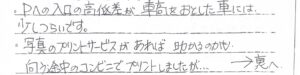 ・Pへの入口の高低差が 車高をおとした車には、
少しつらいです。
・写真のプリントサービスがあれば 助かるのですが
向う途中のコンビニでプリントしましたが… →裏へ